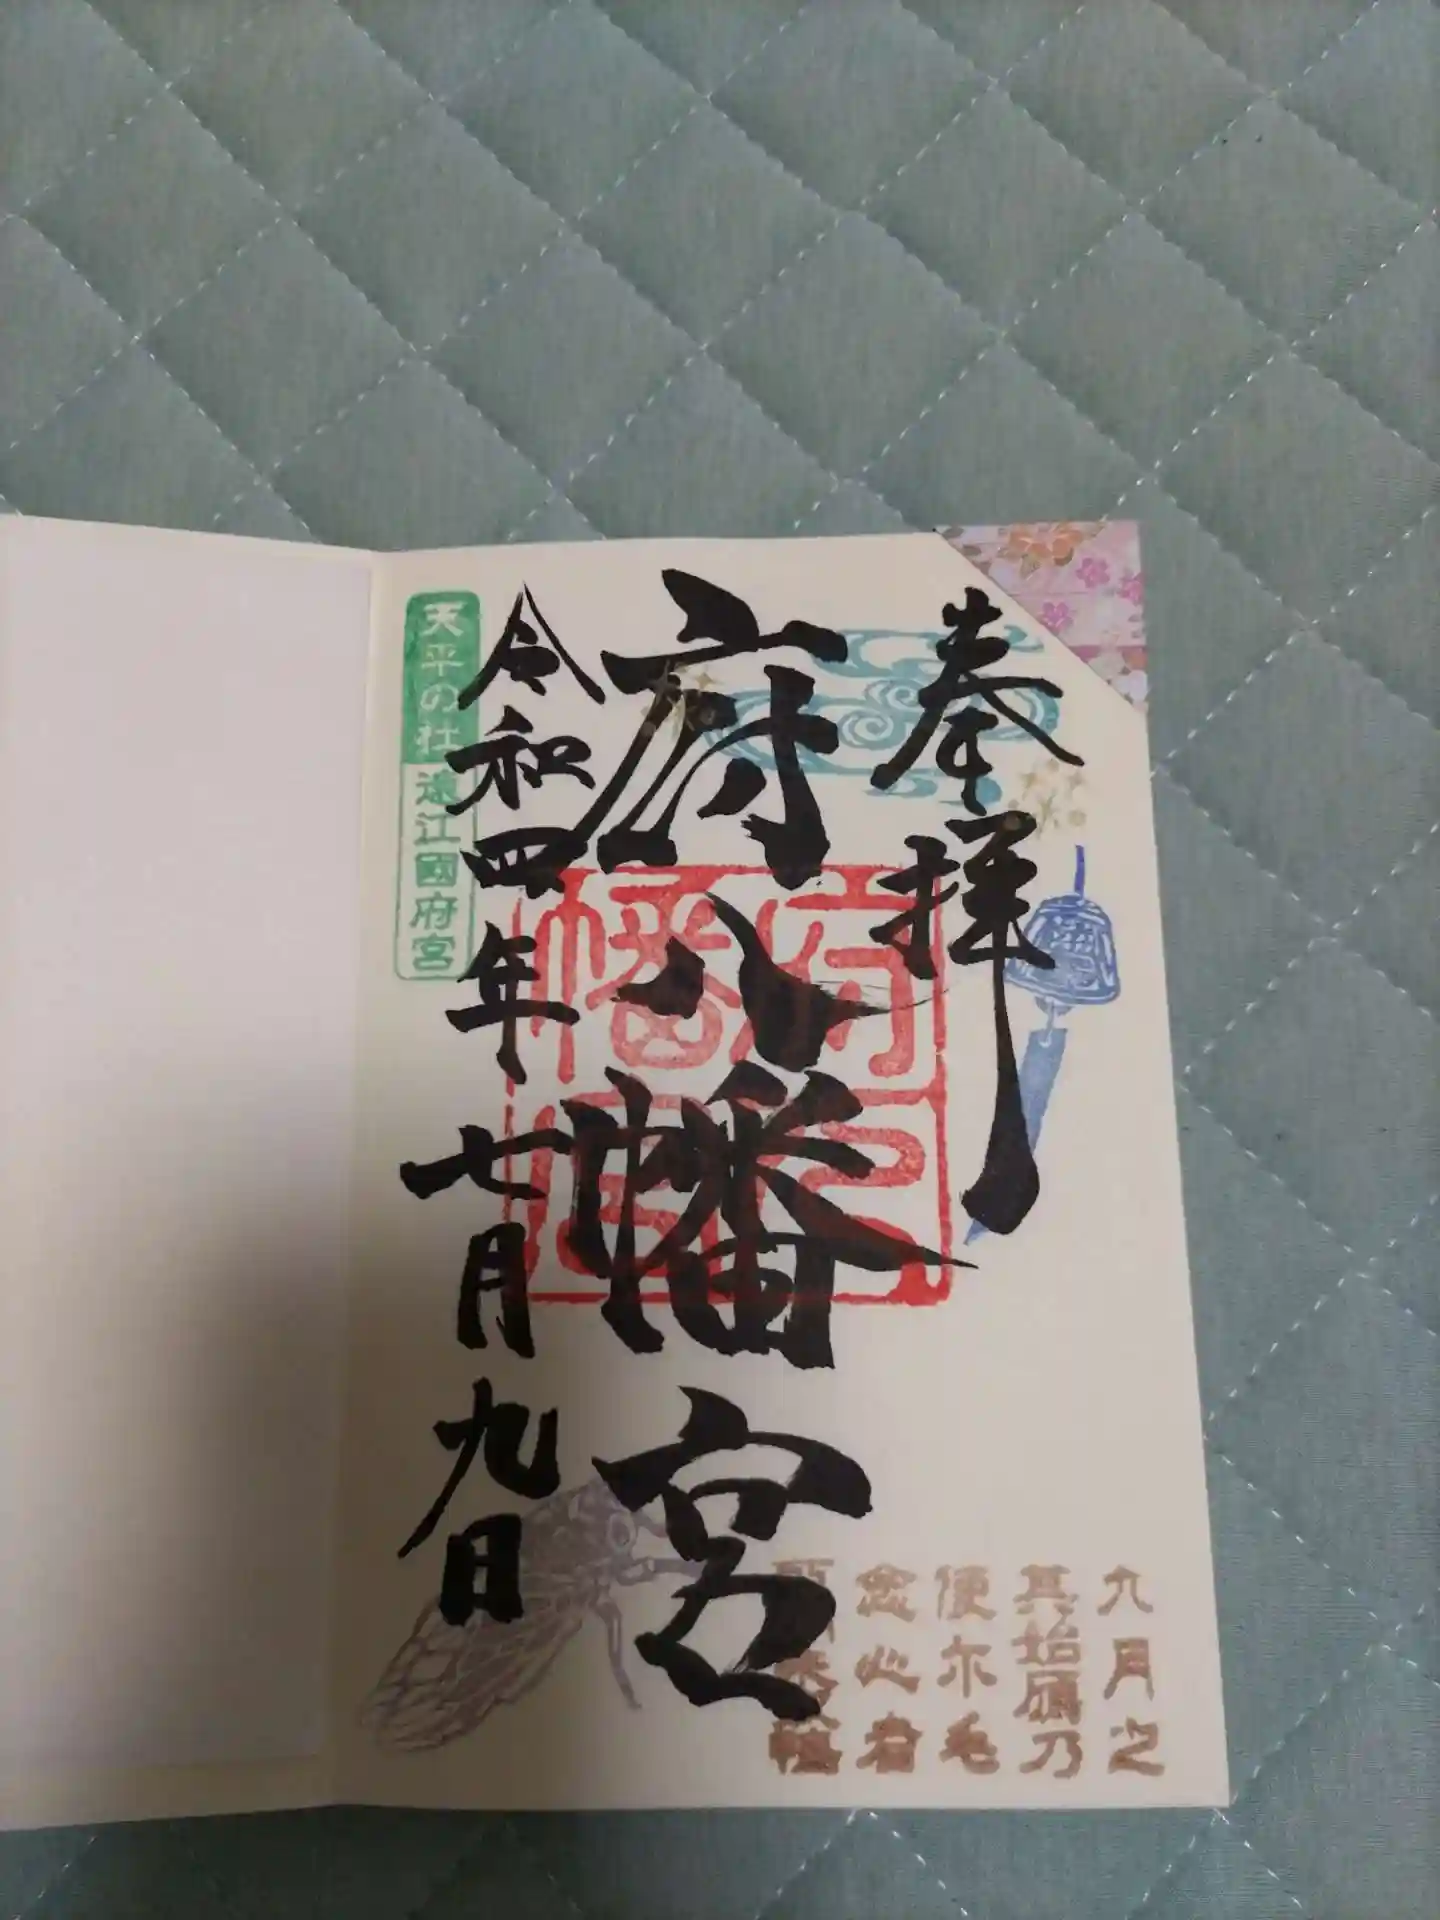 奉拝
府八幡宮
令和四年七月九日
天平の杜
遠江國府宮
九月之
其始鴈乃
便尓毛
念心者